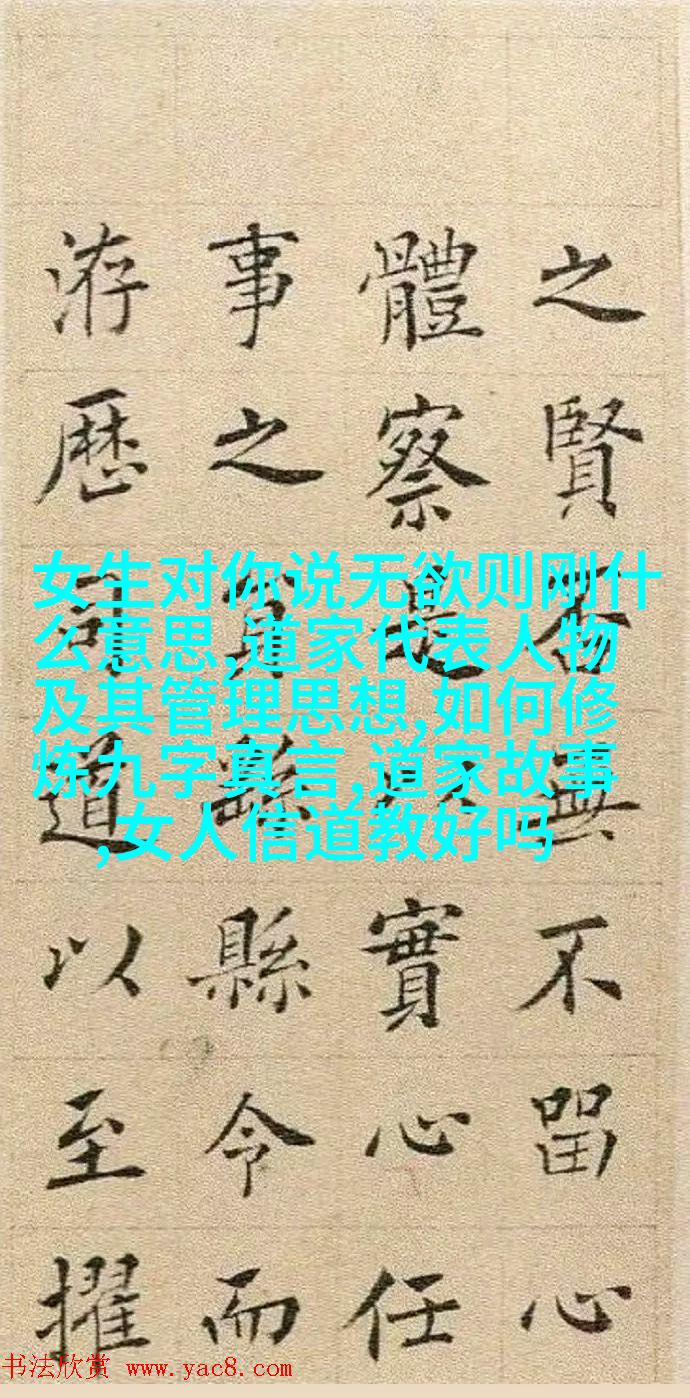 之賢否無不留心
體察是實心任
事之員繇縣令而
洊歷司道以至擢
女生对你说无欲则刚什
么意思,道家代表人物
及其管理思想,如何修
炼九字真言,道家故事
,女人信道教好吗
书法欣赏 www.yac8.com